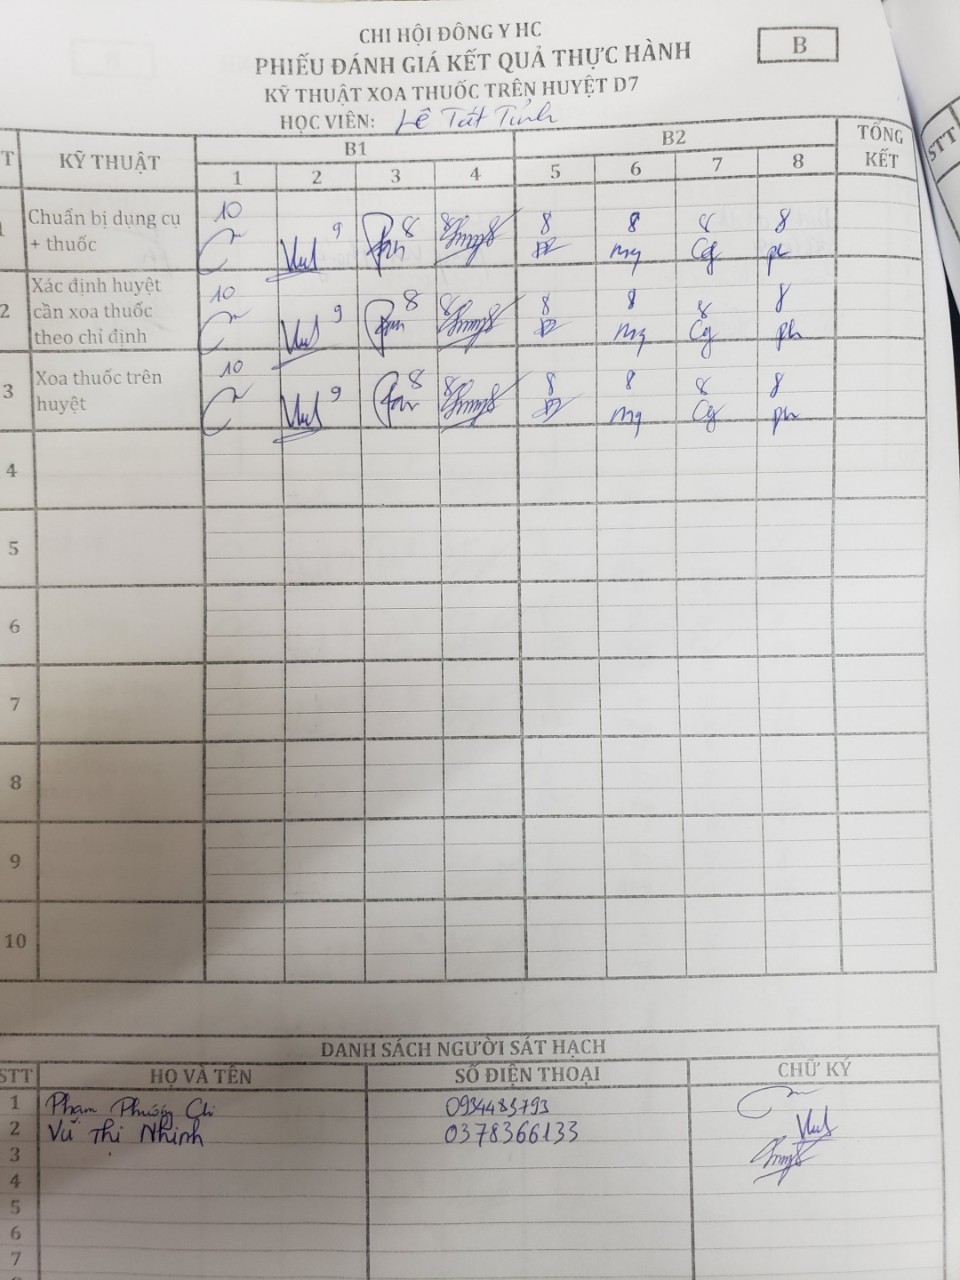 CHI HỘI ĐÔNG Y HC
B
PHIẾU ĐÁNH GIÁ KẾT QUẢ THỰC HÀNH
KỸ THUẬT XOA THUỐC TRÊN HUYỆT D7
HỌC VIÊN: Lê Tất Tỉnh
T KỸ THUẬT B1 B2 TỔNG KẾT STT
1 2 3 4 5 6 7 8
1 Chuẩn bị dụng cụ + thuốc 10 9 8 8 8 8 8 8
mq Cg ph
2 Xác định huyệt cần xoa thuốc theo chỉ định 10 9 8 8 8 8 8 8
mq Cg ph
3 Xoa thuốc trên huyệt 10 9 8 8 8 8 8 8
mq Cg ph
4
5
6
7
8
9
10
DANH SÁCH NGƯỜI SÁT HẠCH
STT HỌ VÀ TÊN SỐ ĐIỆN THOẠI CHỮ KÝ
1 Phạm Phương Chi 0934483793
2 Vũ Thị Nhinh 0378366133
3
4
5
6
7